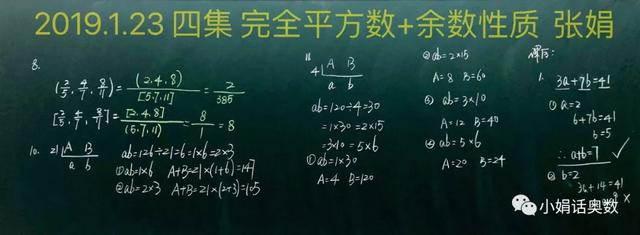 2019.1.23 四集 完全平方数+余数性质 张娟
8.
(2/5, 4/7, 8/11) = (2,4,8)/[5,7,11] = 2/385
[2/5, 4/7, 8/11] = [2,4,8]/(5,7,11) = 8/1 = 8
10. 21 A B
a b
ab=126÷21=6=1×6=2×3
①ab=1×6 A+B=21×(1+6)=147
②ab=2×3 A+B=21×(2+3)=105
11
4 A B
a b
ab=120÷4=30
=1×30=2×15
=3×10=5×6
①ab=1×30
A=4 B=120
②ab=2×15
A=8 B=60
③ab=3×10
A=12 B=40
④ab=5×6
A=20 B=24
课后:
1. 3a+7b=41
①a=2
6+7b=41
b=5
∴a+b=7 ✓
②b=2
3a+14=41
a=9 ×
小娟话奥数